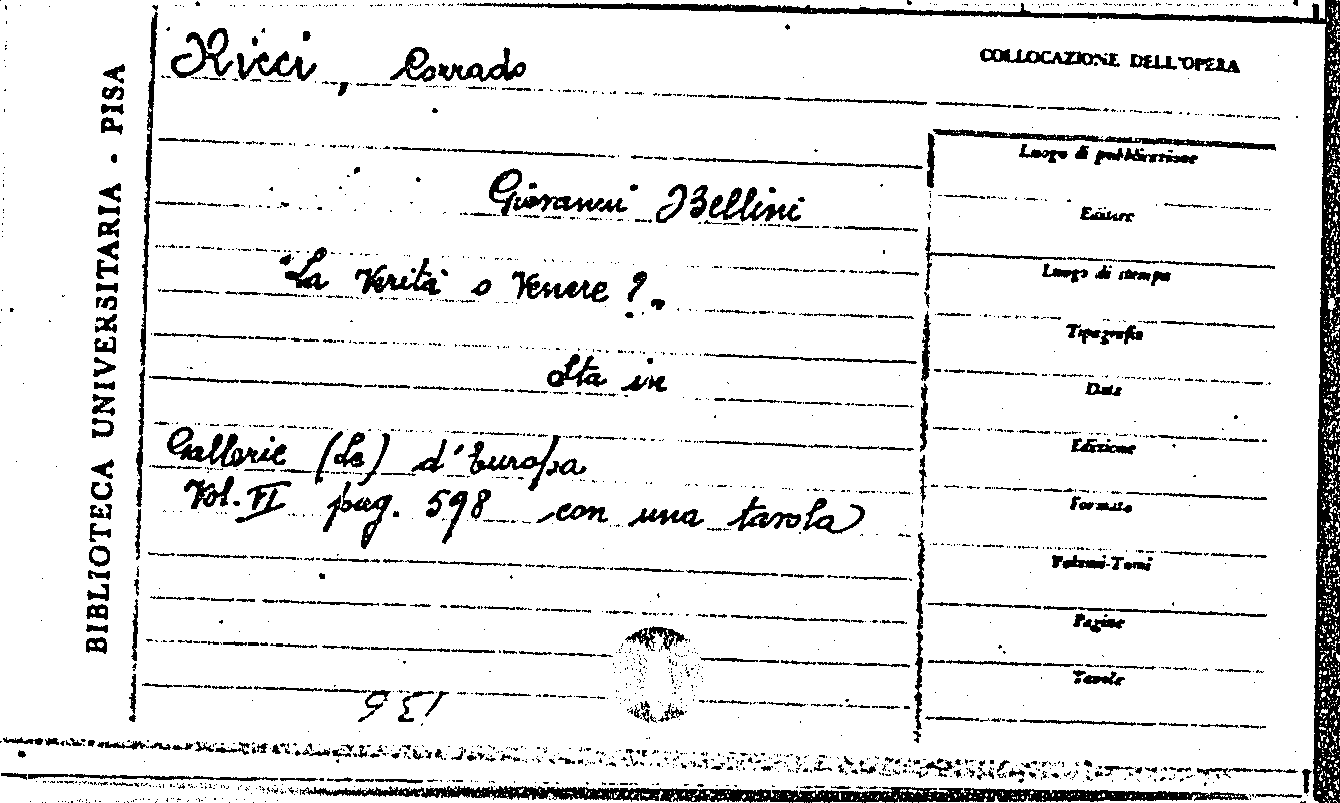 BIBLIOTECA UNIVERSITARIA - PISA
Ricci, Corrado
COLLOCAZIONE DELL'OPERA
Giovanni Bellini
"La Verità o Venere?"
Sta in
Gallerie (Le) d'Europa
Vol. VI pag. 598 con una tavola
Luogo di pubblicazione
Editore
Luogo di stampa
Tipografia
Data
Edizione
Formato
Volumi-Tomi
Pagine
Tavole